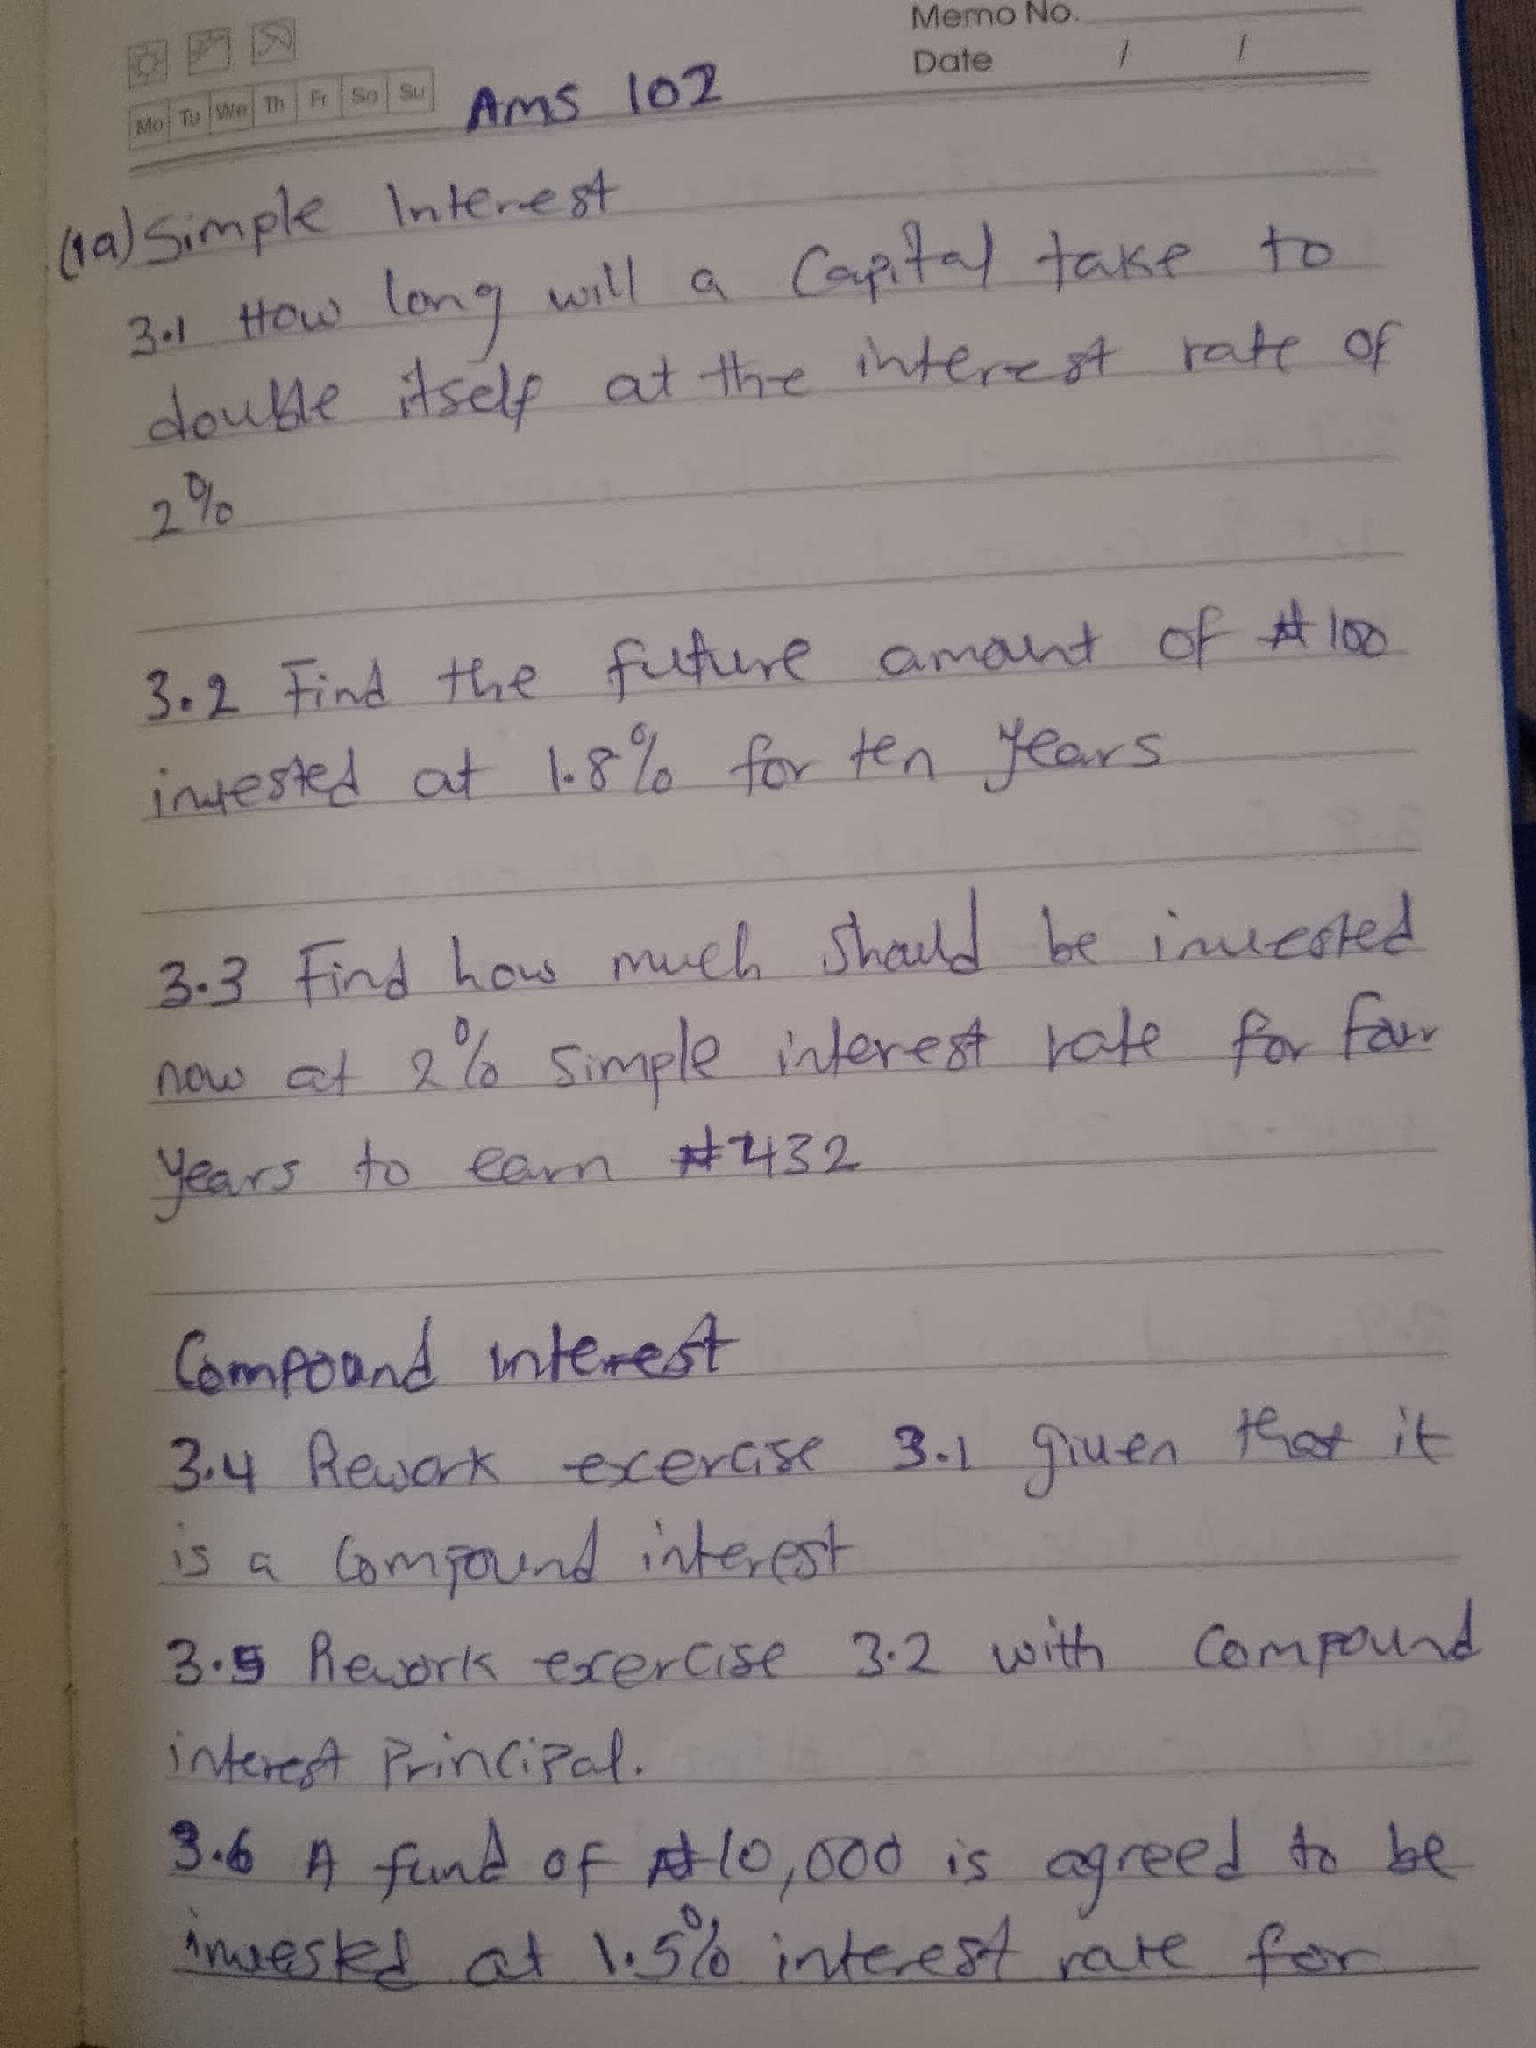 Memo No.
Date / /
Mo Tu We Th Fr Sa Su
AMS 102
(1a) Simple Interest
3.1 How long will a Capital take to
double itself at the interest rate of
2%
3.2 Find the future amount of ₦100
invested at 1.8% for ten years
3.3 Find how much should be invested
now at 2% simple interest rate for four
years to earn ₦432
Compound interest
3.4 Rework exercise 3.1 given that it
is a compound interest
3.5 Rework exercise 3.2 with compound
interest Principal.
3.6 A fund of ₦10,000 is agreed to be
invested at 1.5% interest rate for